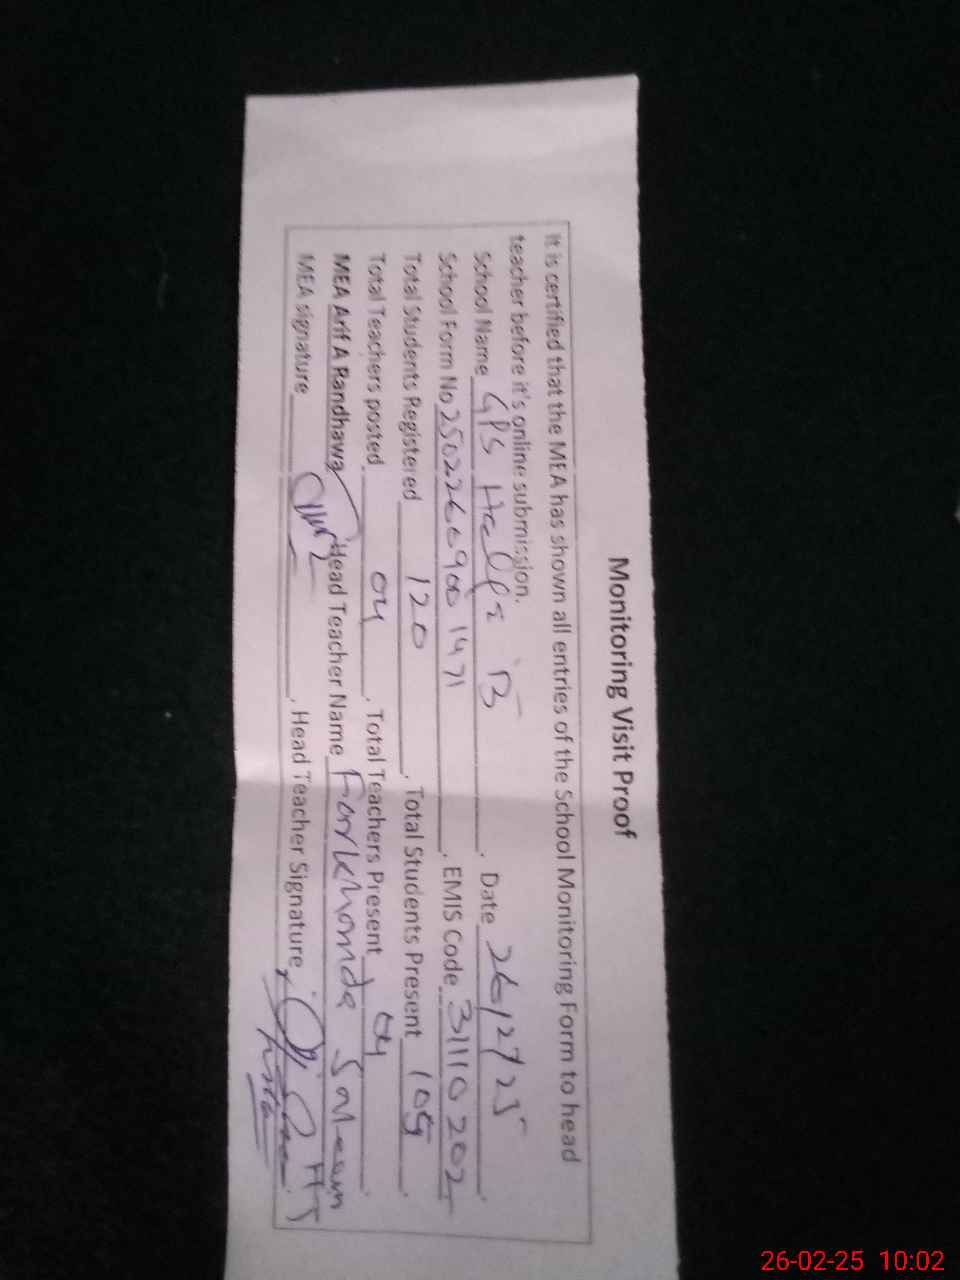 Monitoring Visit Proof
It is certified that the MEA has shown all entries of the School Monitoring Form to head
teacher before it's online submission.
School Name GPS B, Date 26/2/25
School Form No 25022609001471, EMIS Code 31110202
Total Students Registered 120, Total Students Present 109
Total Teachers posted 04, Total Teachers Present 04
MEA Arif A Randhawa Head Teacher Name Farkhanda
MEA signature, Head Teacher Signature
26-02-25 10:02